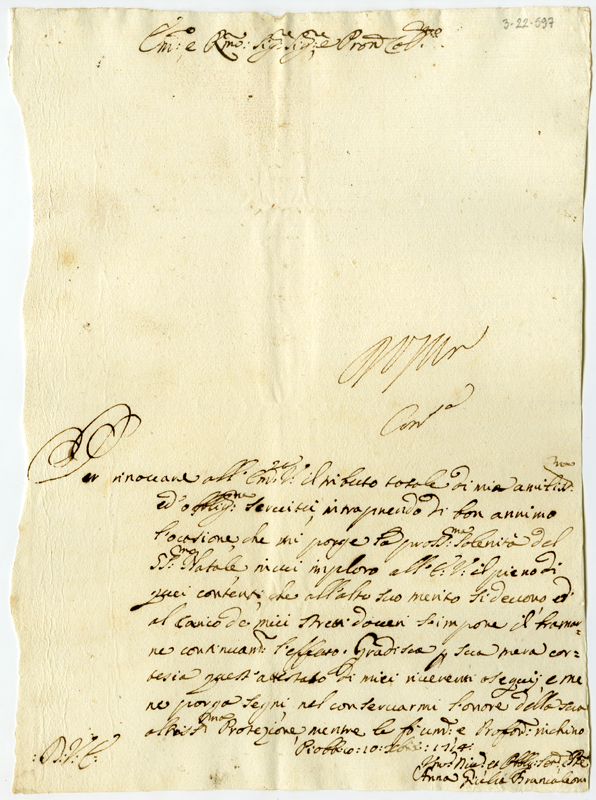 3-22-597
Em:º e Rmº: Sigr: Sigr: e Pron Col:mo
Per rinovare all' Emza: V: il tributo totale di mia
ed' obblig:me servitù, intraprendo di bon annimo
l'occasione, che mi porge la pross:me Solenità del
SS:mo Natale in cui inploro all' E: V: il pieno di
quei contenti, che all'alto suo merito si devono ed
al carico de miei stessi doveri s'impone il bramar=
ne continuam: l'effetto. Gradisca p sua mera cor=
tesia quest'attestato di miei riverenti osequij, e me
ne porga segni nel conservarmi l'onore della sua
Protezione, mentre le fò um: e Profond: inchino
Piobbico 10: Xbre: 1714
: D: V: E:
Um: Obblig: Ser:
Anna Giulia Brancaleoni